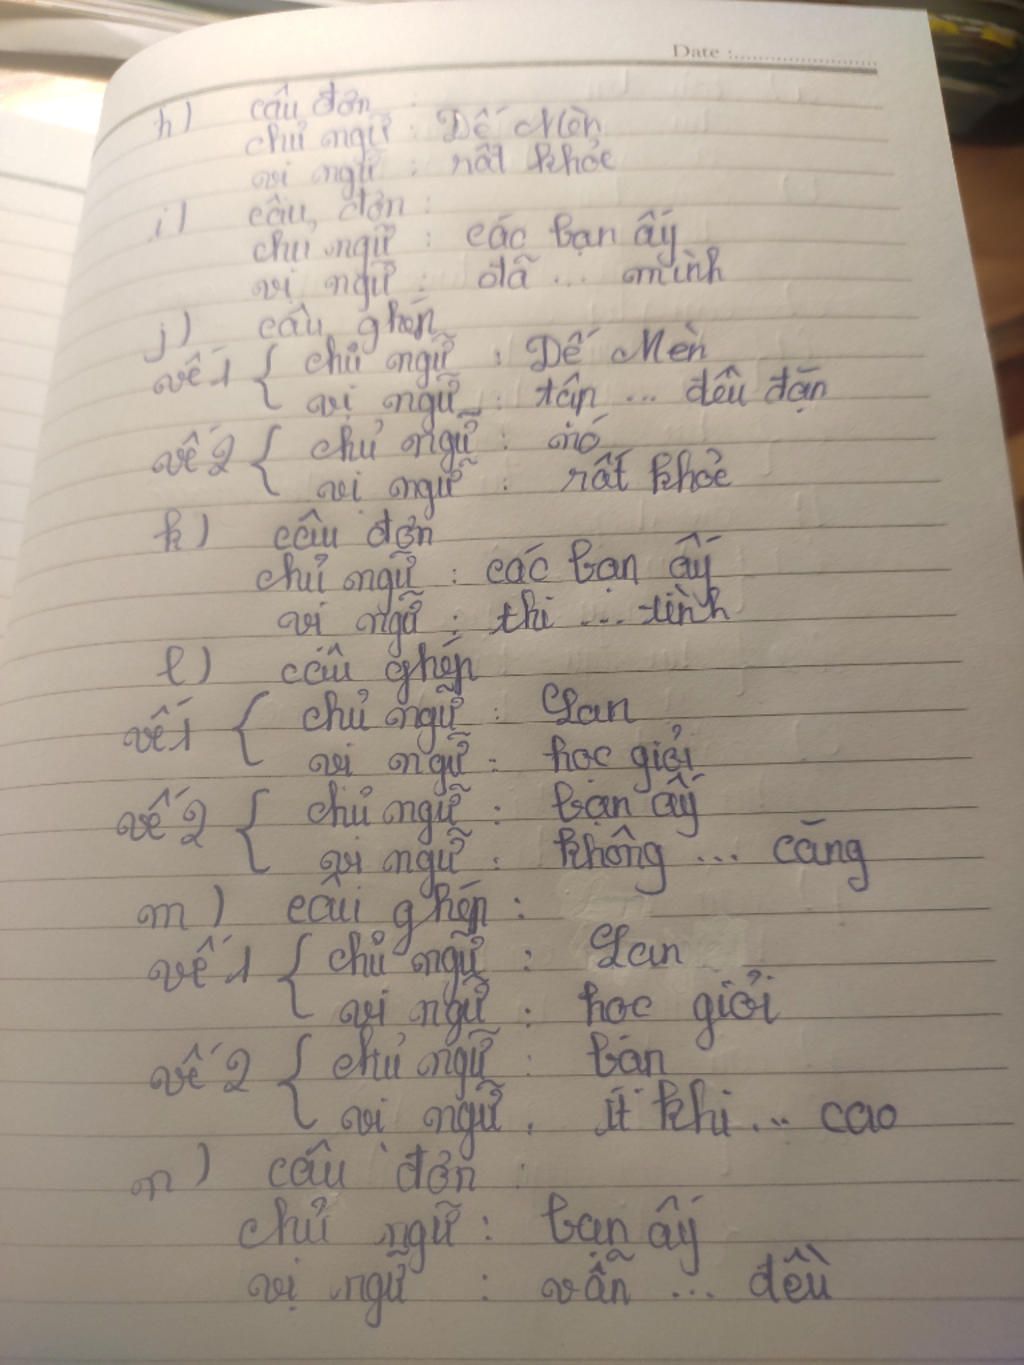 Date :
h) câu đơn :
chủ ngữ : Dế Mèn
vị ngữ : rất khỏe
i) câu đơn :
chủ ngữ : các bạn ấy
vị ngữ : đã ... mình
j) câu ghép
vế 1 { chủ ngữ : Dế Mèn
vị ngữ : tập ... đều đặn
vế 2 { chủ ngữ : nó
vị ngữ : rất khỏe
k) câu đơn
chủ ngữ : các bạn ấy
vị ngữ : thi ... tình
l) câu ghép
vế 1 { chủ ngữ : Lan
vị ngữ : học giỏi
vế 2 { chủ ngữ : bạn ấy
vị ngữ : không ... căng
m) câu ghép :
vế 1 { chủ ngữ : Lan
vị ngữ : học giỏi
vế 2 { chủ ngữ : bạn
vị ngữ : ít khi ... cao
n) câu đơn :
chủ ngữ : bạn ấy
vị ngữ : vẫn ... đều